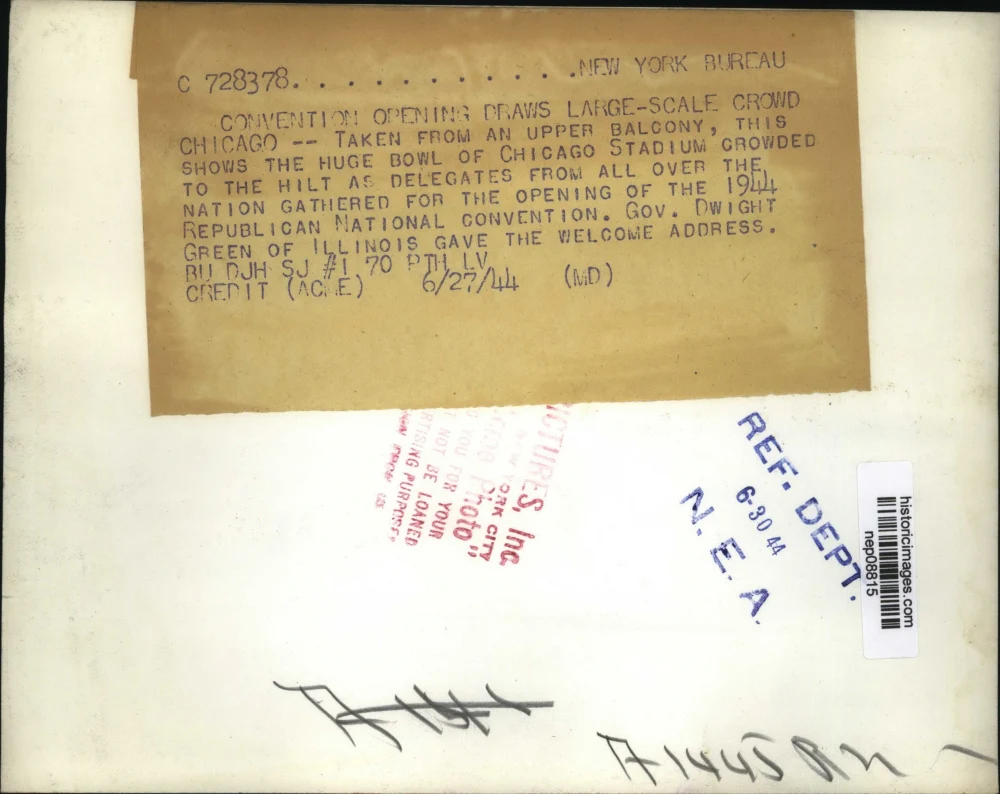 C 728378. . . . . . . . . . . .NEW YORK BUREAU
CONVENTION OPENING DRAWS LARGE-SCALE CROWD
CHICAGO -- TAKEN FROM AN UPPER BALCONY, THIS
SHOWS THE HUGE BOWL OF CHICAGO STADIUM CROWDED
TO THE HILT AS DELEGATES FROM ALL OVER THE
NATION GATHERED FOR THE OPENING OF THE 1944
REPUBLICAN NATIONAL CONVENTION. GOV. DWIGHT
GREEN OF ILLINOIS GAVE THE WELCOME ADDRESS.
BU DJH SJ #1 70 PTH LV
CREDIT (ACME) 6/27/44 (MD)
ICTURES, Inc.
NEW YORK CITY
Photo"
YOU FOR YOUR
NOT BE LOANED
RTISING PURPOSES
REF. DEPT.
6-30 44
N. E. A.
historicimages.com
nep08815